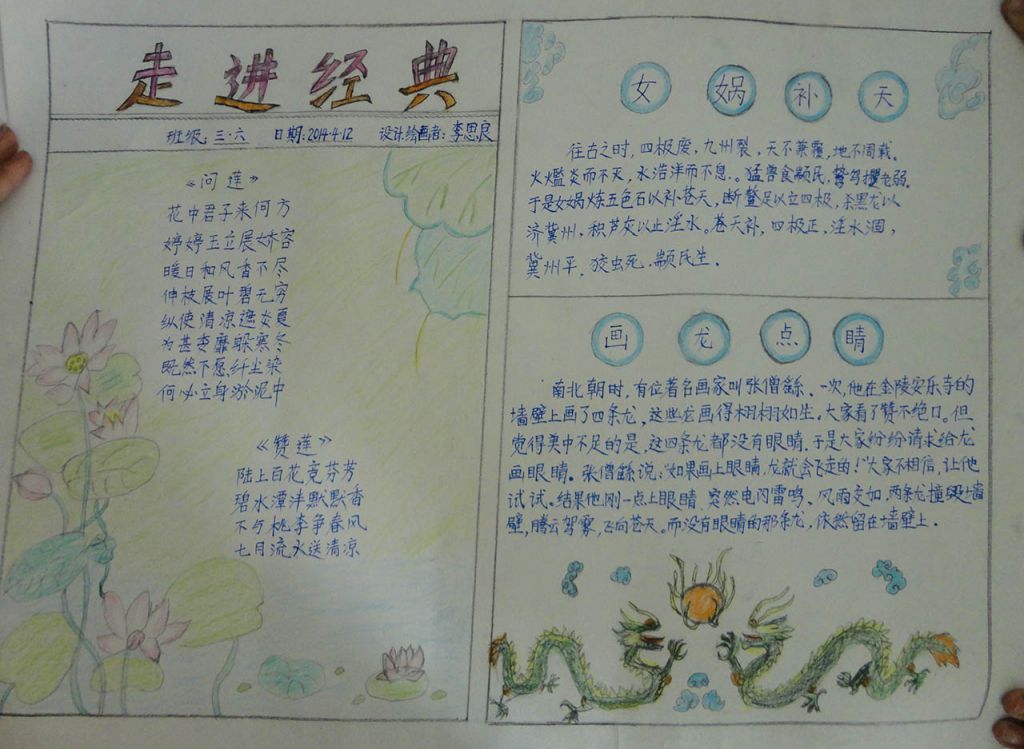 走进经典
班级:三·六 日期:2014·4·12 设计绘画者:李思良
《问莲》
花中君子来何方
婷婷玉立展娇容
暖日和风香不尽
伸枝展叶碧无穷
纵使清凉遮炎夏
为甚委靡躲寒冬
既然不愿纤尘染
何必立身淤泥中
《赞莲》
陆上百花竞芬芳
碧水潭泮默默香
不与桃李争春风
七月流水送清凉
女娲补天
往古之时,四极废,九州裂,天不兼覆,地不周载。
火爁炎而不灭,水浩洋而不息。猛兽食颛民,鸷鸟攫老弱。
于是女娲炼五色石以补苍天,断鳌足以立四极,杀黑龙以
济冀州,积芦灰以止淫水。苍天补,四极正,淫水涸,
冀州平,狡虫死,颛民生.
画龙点睛
南北朝时,有位著名画家叫张僧繇.一次,他在金陵安乐寺的
墙壁上画了四条龙,这些龙画得栩栩如生.大家看了赞不绝口.但
觉得美中不足的是,这四条龙都没有眼睛.于是大家纷纷请求给龙
画眼睛。张僧繇说:"如果画上眼睛,龙就会飞走的!"大家不相信,让他
试试.结果他刚一点上眼睛,突然电闪雷鸣,风雨交加,两条龙撞毁墙
壁,腾云驾雾,飞向苍天。而没有眼睛的那条龙,依然留在墙壁上.